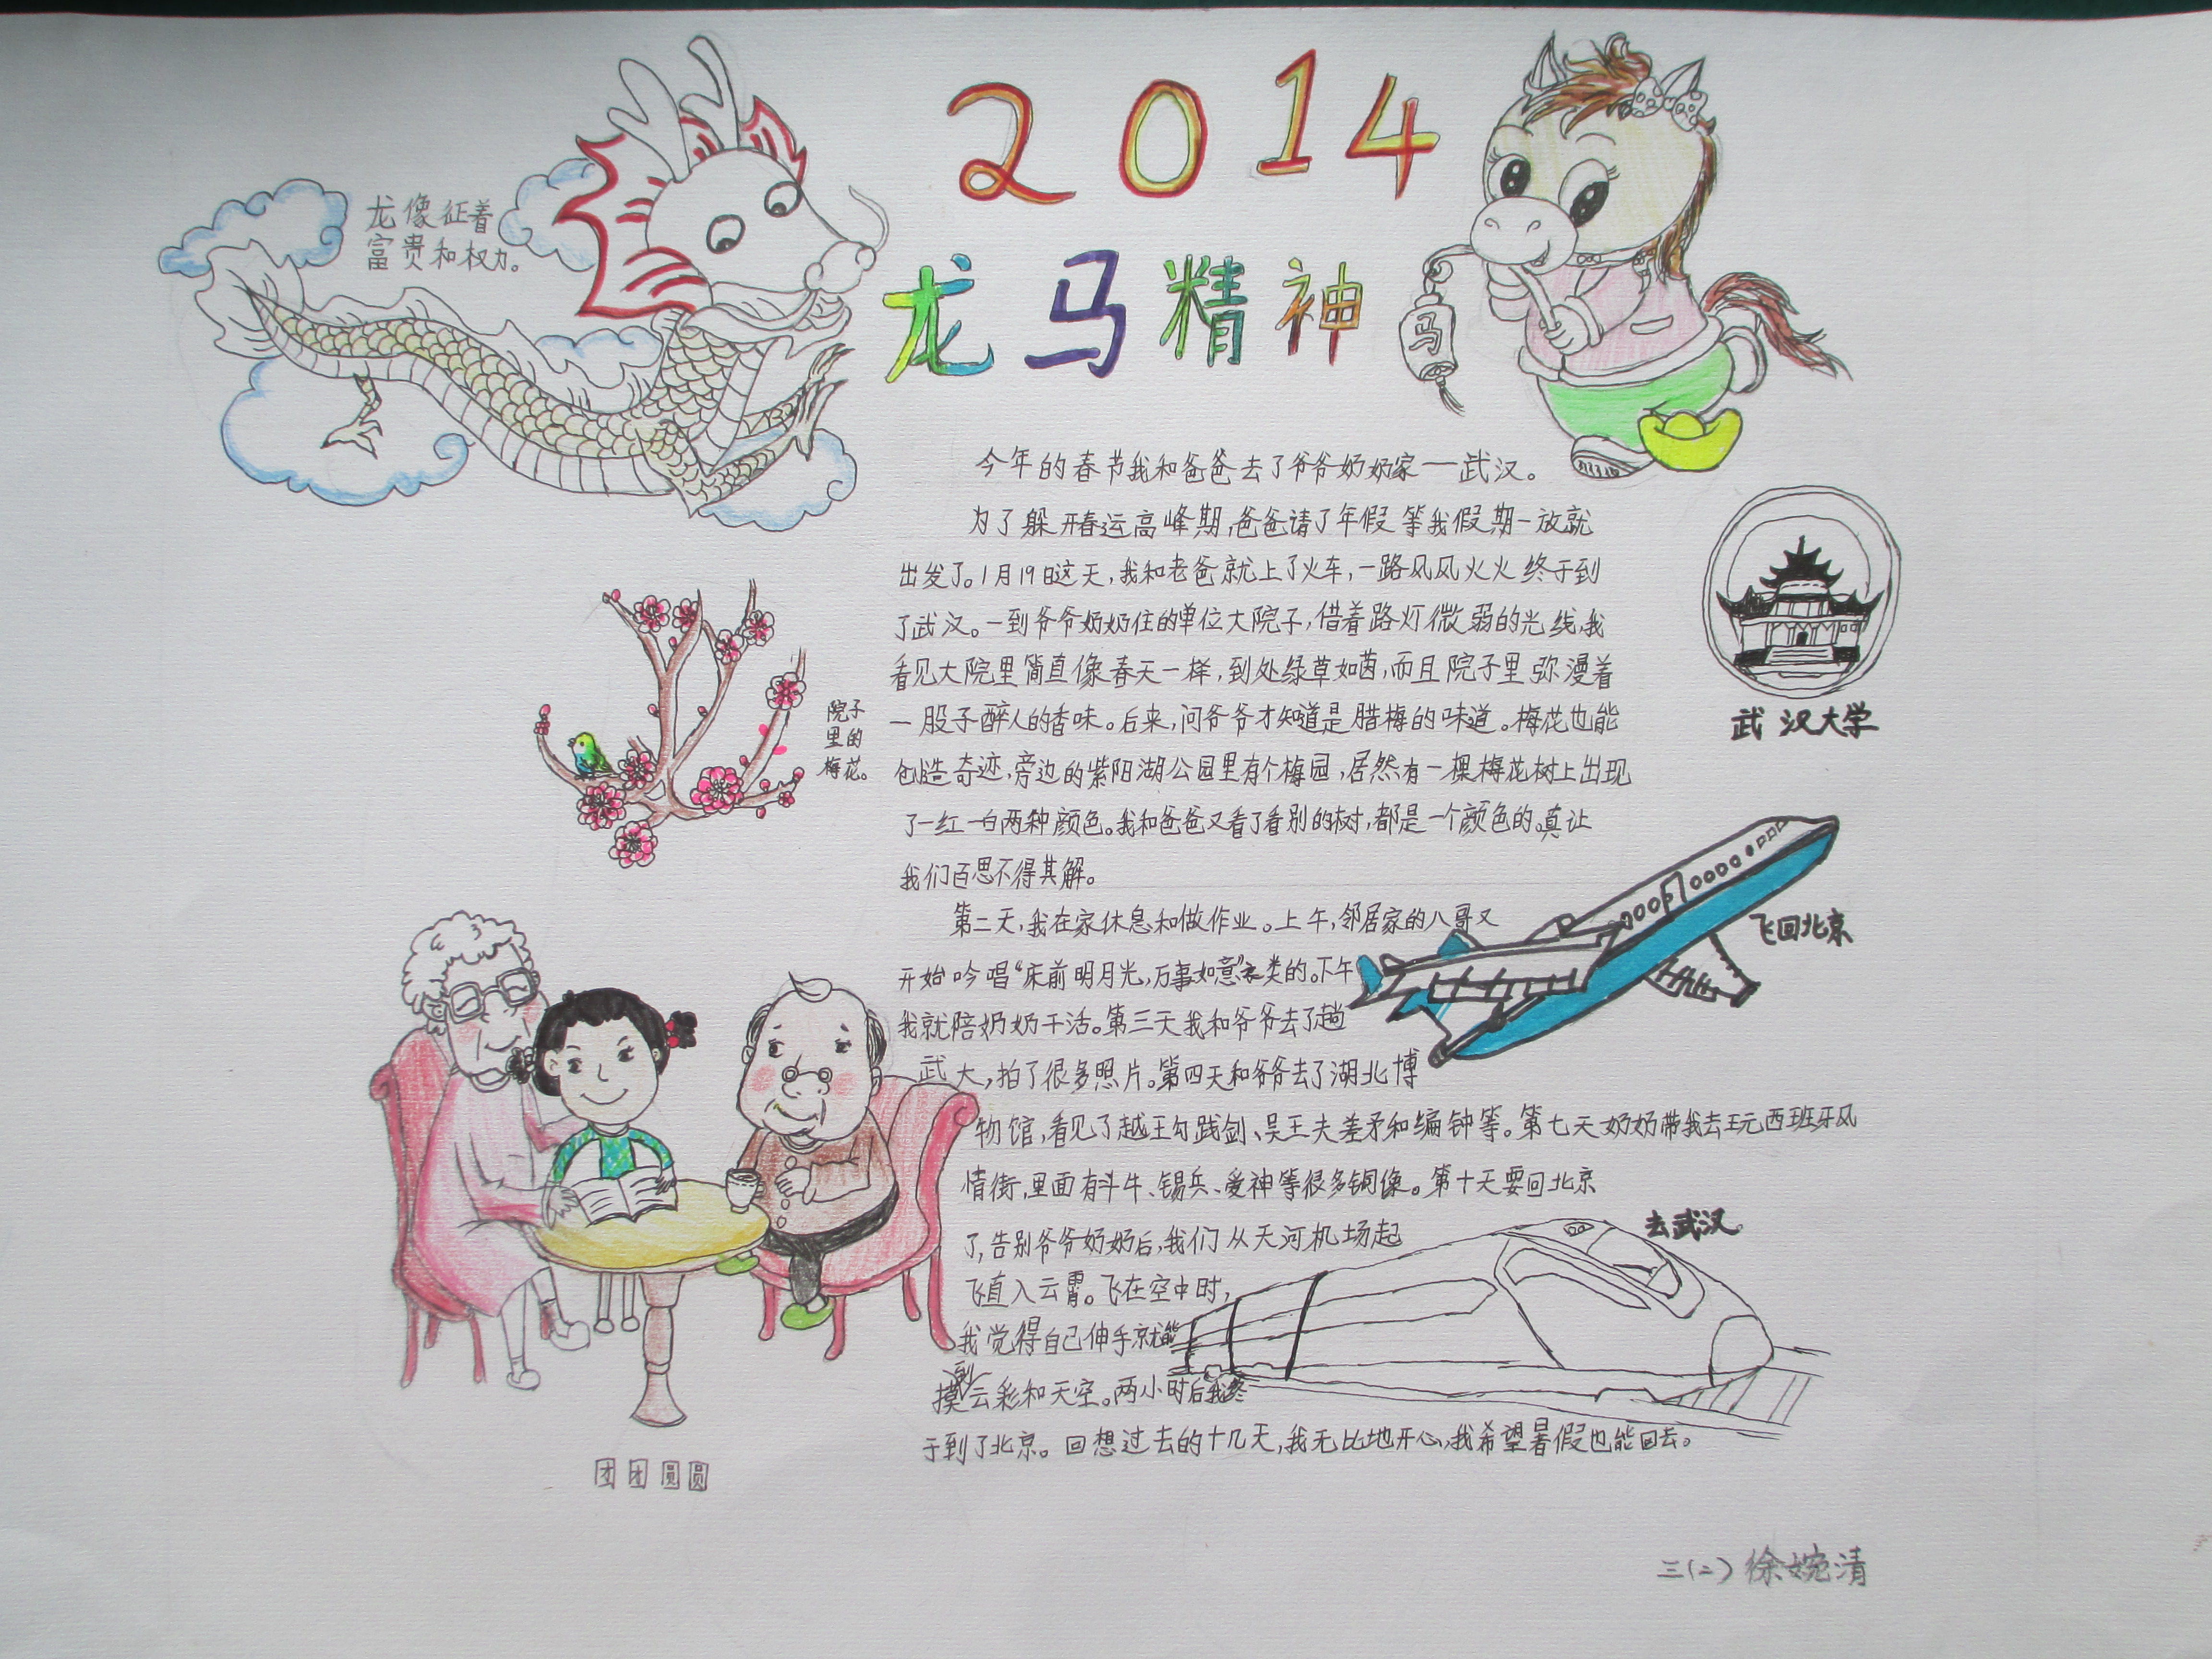 2014
龙马精神
龙像征着
富贵和权力。
马
今年的春节我和爸爸去了爷爷奶奶家一武汉。
为了躲开春运高峰期,爸爸请了年假等我假期一放就
出发了。1月19日这天,我和老爸就上了火车,一路风风火火终于到
了武汉。一到爷爷奶奶住的单位大院子,借着路灯微弱的光线,我
看见大院里简直像春天一样,到处绿草如茵,而且院子里弥漫着
一股子醉人的香味。后来,问爷爷才知道是腊梅的味道。梅花也能
创造奇迹,旁边的紫阳湖公园里有个梅园,居然有一棵梅花树上出现
了一红一白两种颜色。我和爸爸又看了看别的树,都是一个颜色的。真让
我们百思不得其解。
第二天,我在家休息和做作业。上午,邻居家的八哥又
开始吟唱“床前明月光,万事如意”之类的。下午
我就陪奶奶干活。第三天我和爷爷去了趟
武大,拍了很多照片。第四天和爷爷去了湖北博
物馆,看见了越王勾践剑、吴王夫差矛和编钟等。第七天奶奶带我去玩西班牙风
情街,里面有斗牛、锡兵、爱神等很多铜像。第十天要回北京
了,告别爷爷奶奶后,我们从天河机场起
飞直入云霄。飞在空中时,
我觉得自己伸手就能
摸到云彩和天空。两小时后我终
于到了北京。回想过去的十几天,我无比地开心,我希望暑假也能回去。
武汉大学
院子
里的
梅花。
飞回北京
去武汉。
团团圆圆
三(二)徐婉清